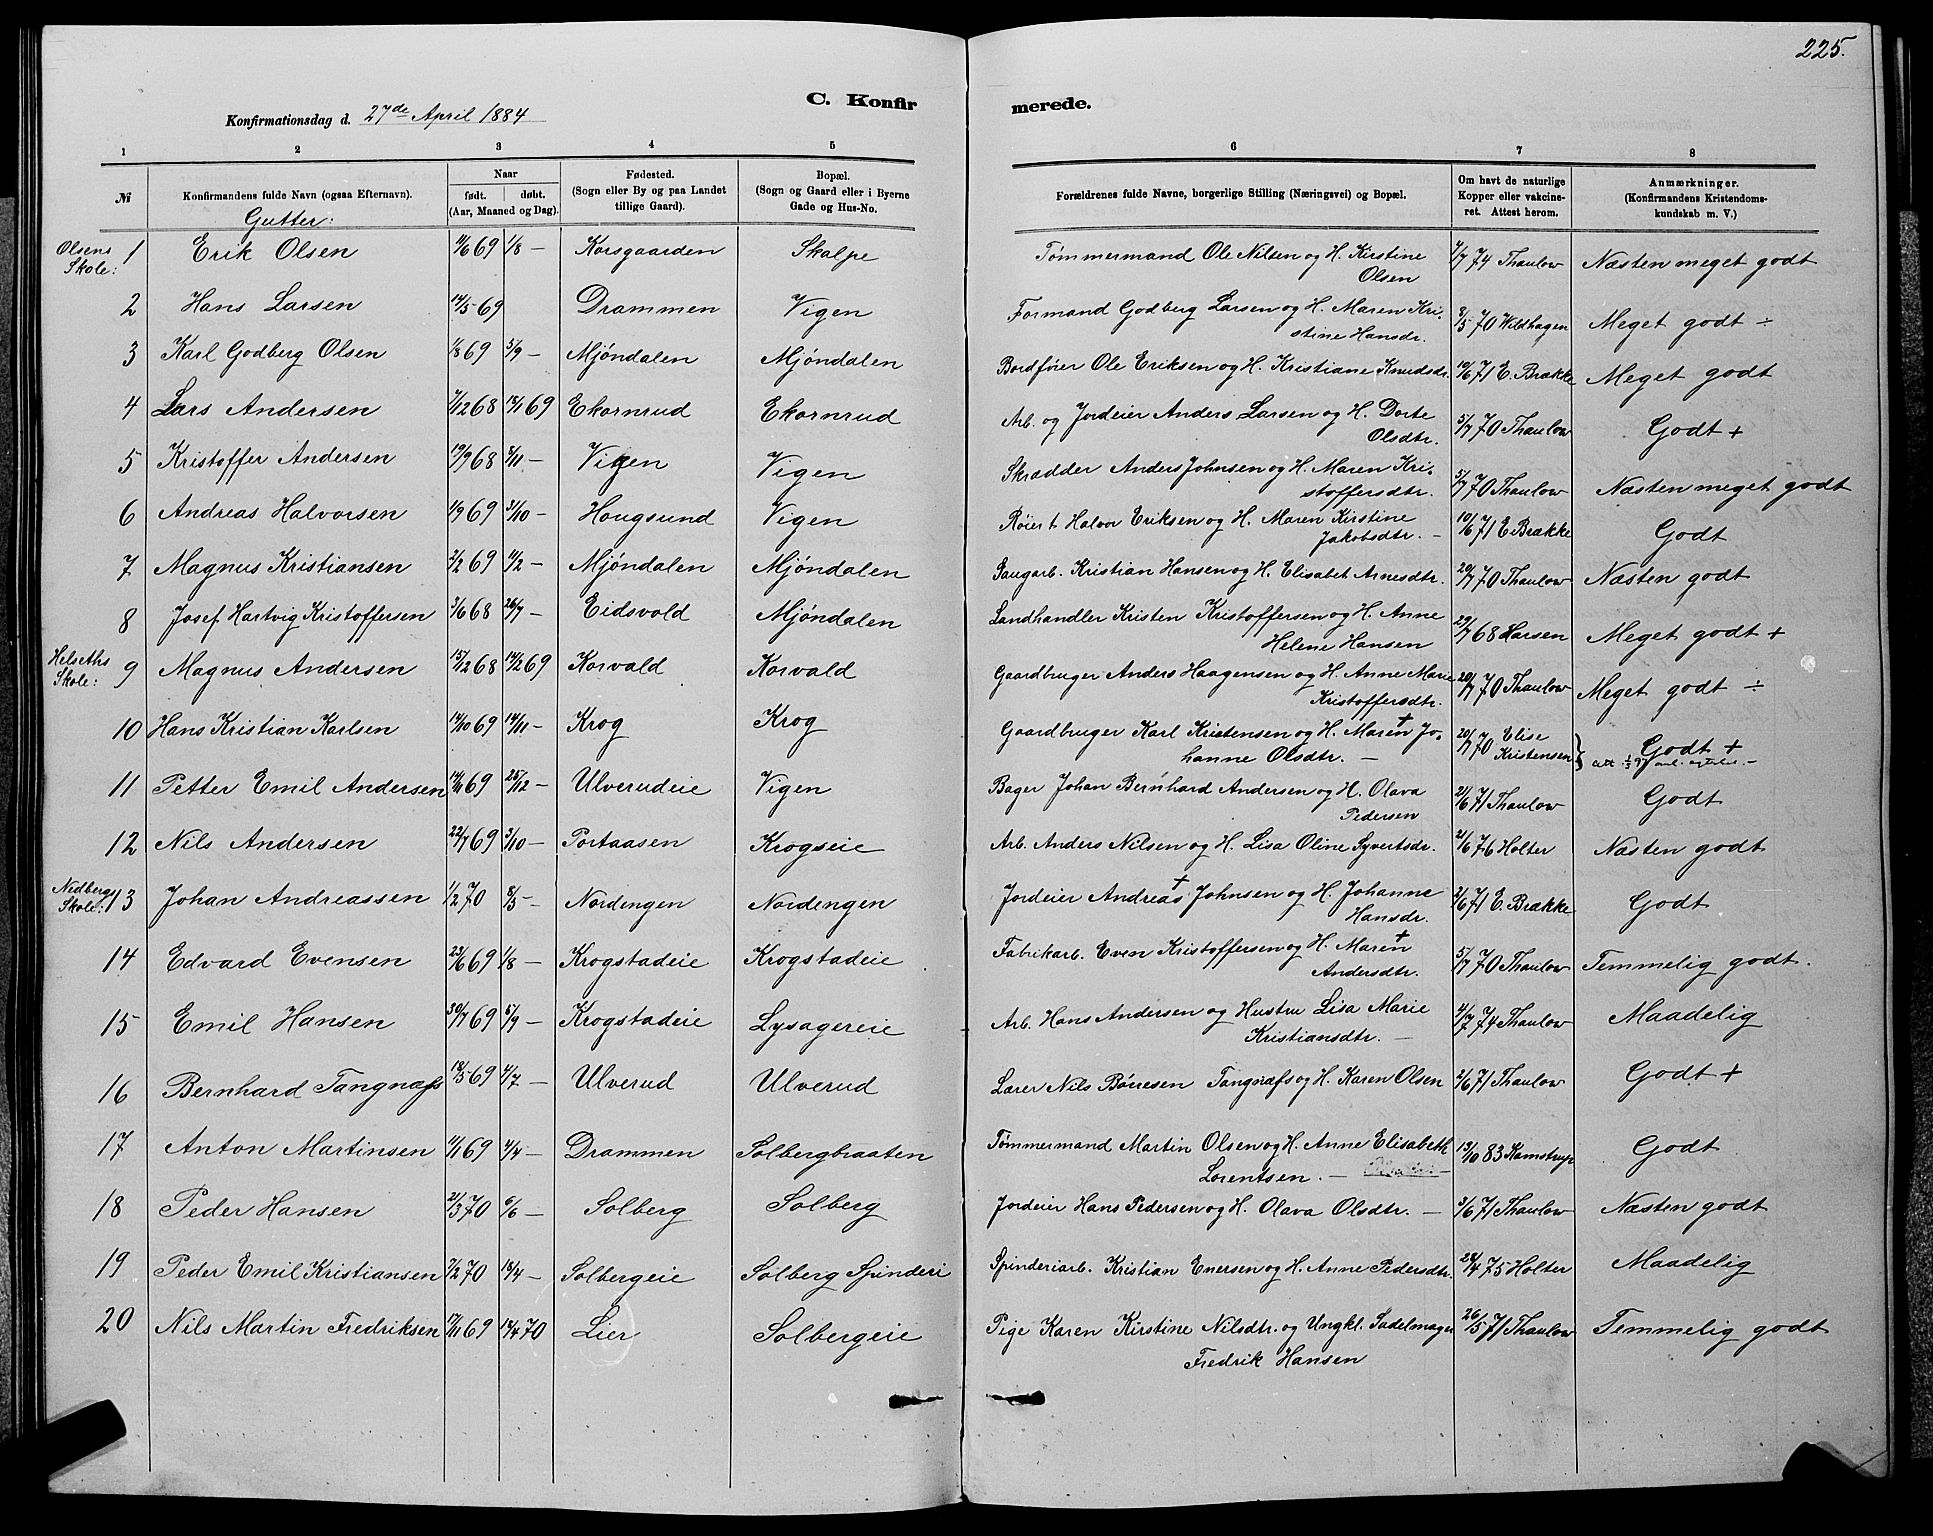 225.
C. Konfir
merede.
Konfirmationsdag d. 27de April 1884
1 2 3 4 5 6 7 8
№ Konfirmandens fulde Navn (ogsaa Efternavn). Naar født. døbt. (Aar, Maaned og Dag). Fødested. (Sogn eller By og paa Landet tillige Gaard). Bopæl. (Sogn og Gaard eller i Byerne Gade og Hus-No. Forældrenes fulde Navne, borgerlige Stilling (Næringsvei) og Bopæl. Om havt de naturlige Kopper eller vakcineret. Attest herom. Anmærkninger. (Konfirmandens Kristendomskundskab m. V.)
Gutter:
Olsens Skole: 1 Erik Olsen 11/6 69 1/8 — Korsgaarden Skalpe Tømmermand Ole Nilsen og H. Kirstine Olsen 4/7 74 Thaulow Næsten meget godt
2 Hans Larsen 14/5 69 Drammen Vigen Formand Godberg Larsen og H. Maren Kristine Hansdr. 8/5 70 Wildhagen Meget godt ÷
3 Karl Godberg Olsen 1/8 69 5/9 — Mjóndalen Mjóndalen Bordfører Ole Eriksen og H. Kristiane Knudsdr. 10/6 71 E. Brække Meget godt
4 Lars Andersen 7/12 68 17/1 69 Ekornrud Ekornrud Arb. og Jordeier Anders Larsen og H. Dorte Olsdtr. 5/7 70 Thaulow Godt +
5 Kristoffer Andersen 19/9 68 8/11 — Vigen Vigen Skrædder Anders Johnsen og H. Maren Kristoffersdtr. 5/7 70 Thaulow Næsten meget godt
6 Andreas Halvorsen 1/9 69 31/10 — Hougsund Vigen Røiert Halvor Eriksen og H. Maren Kirstine Jakobsdtr. — 10/6 71 E. Brække Godt
7 Magnus Kristiansen 2/2 69 11/2 — Mjóndalen Mjóndalen Saugarb. Kristian Hansen og H. Elisabet Arnesdtr. 20/7 70 Thaulow Næsten godt
8 Josef Hartvig Kristoffersen 3/6 68 26/7 — Eidsvold Mjóndalen Landhandler Kristen Kristoffersen og H. Anne Helene Hansen 29/7 68 Larsen Meget godt +
Helseths Skole: 9 Magnus Andersen 15/12 68 14/2 69 Korvald Korvald Gaardbruger Anders Haagensen og H. Anne Marie Kristoffersdtr. 20/7 70 Thaulow Meget godt ÷
10 Hans Kristian Karlsen 14/10 69 14/11 — Krog Krog Gaardbruger Karl Kristensen og H. Maren † Johanne Olsdtr. — 20/7 70 Elise Kristensen Godt +
11 Petter Emil Andersen 14/11 69 25/12 — Ulverudeie Vigen Bager Johan Bernhard Andersen og H. Olava Pedersen 21/6 71 Thaulow Godt
12 Nils Andersen 22/7 69 3/10 — Portaasen Krogseie Arb. Anders Nilsen og H. Lisa Oline Syvertsdr. 21/6 76 Holter Næsten godt
Nedbergs Skole: 13 Johan Andreassen 1/2 70 8/5 — Nordengen Nordengen Jordeier Andreas † Johnsen og H. Johanne Hansdr. 2/6 71 E. Brække Godt
14 Edvard Evensen 23/6 69 1/8 — Krogstadeie Krogstadeie Fabrikarb. Even Kristoffersen og H. Maren † Andersdtr. 5/7 70 Thaulow Temmelig godt.
15 Emil Hansen 30/7 69 5/9 — Krogstadeie Lysagereie Arb. Hans Andersen og Hustru Lisa Marie Kristiansdtr. — 4/7 74 Thaulow Maadelig
16 Bernhard Tangnæss 18/5 69 4/7 — Ulverud Ulverud Lærer Nils Børresen Tangnæss og H. Karen Olsen 2/6 71 Thaulow Godt +
17 Anton Martinsen 11/1 69 4/4 — Drammen Solbergbraaten Tømmermand Martin Olsen og H. Anne Elisabeth Lorentsen. — 13/10 83 Kamstrup Godt
18 Peder Hansen 21/3 70 6/6 — Solberg Solberg Jordeier Hans Pedersen og H. Olava Olsdtr. — 3/6 71 Thaulow Næsten godt
19 Peder Emil Kristiansen 7/2 70 18/4 — Solbergeie Solberg Spinderi Spinderiarb. Kristian Enersen og H. Anne Pedersdtr. 28/4 75 Holter Maadelig
20 Nils Martin Fredriksen 17/11 69 14/4 70 Lier Solbergeie Pige Karen Kirstine Nilsdtr. og Ungkl. Sadelmager Fredrik Hansen 26/5 71 Thaulow Temmelig godt